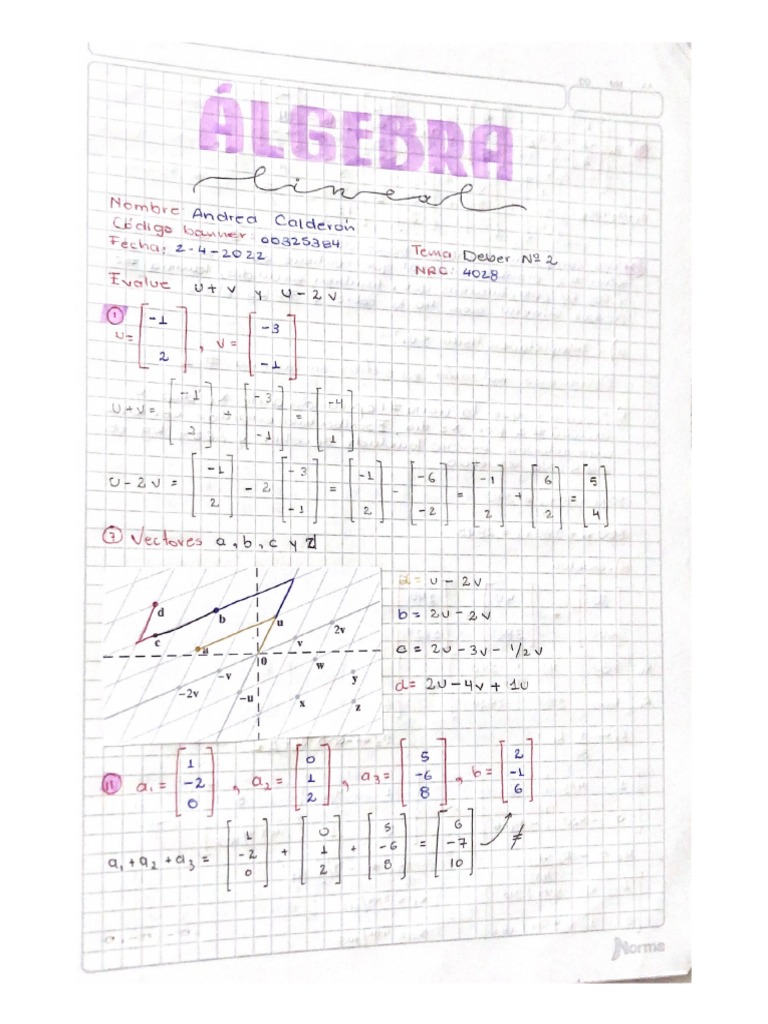 ÁLGEBRA
lineal
Nombre: Andrea Calderón
Código banner: 00325384
Fecha: 2-4-2022
Tema: Deber Nº 2
NRC: 4028
Evalue u + v y u - 2v
① u = [-1 2], v = [-3 -1]
u + v = [-1 2] + [-3 -1] = [-4 1]
u - 2v = [-1 2] - 2 [-3 -1] = [-1 2] - [-6 -2] = [-1 2] + [6 2] = [5 4]
⑦ Vectores a, b, c y z
d
b
c
a
u
2v
v
0
w
-v
y
-2v
-u
x
z
a = u - 2v
b = 2u - 2v
c = 2u - 3v - 1/2 v
d = 2u - 4v + 1u
11 a₁ = [1 -2 0], a₂ = [0 1 2], a₃ = [5 -6 8], b = [2 -1 6]
a₁ + a₂ + a₃ = [1 -2 0] + [0 1 2] + [5 -6 8] = [6 -7 10] ≠
Norma